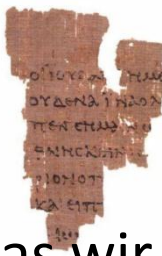 ΟΙ ΙΟΥΔΑΙ ΗΜΕ
ΟΥΔΕΝΑ ΙΝΑ Ο ΛΟ
ΠΕΝ CΗΜΑΙΝΩ
ΘΝΗCΚΕΙΝ
ΡΙΟΝ Ο Π
ΚΑΙ ΕΙΠ
as wir